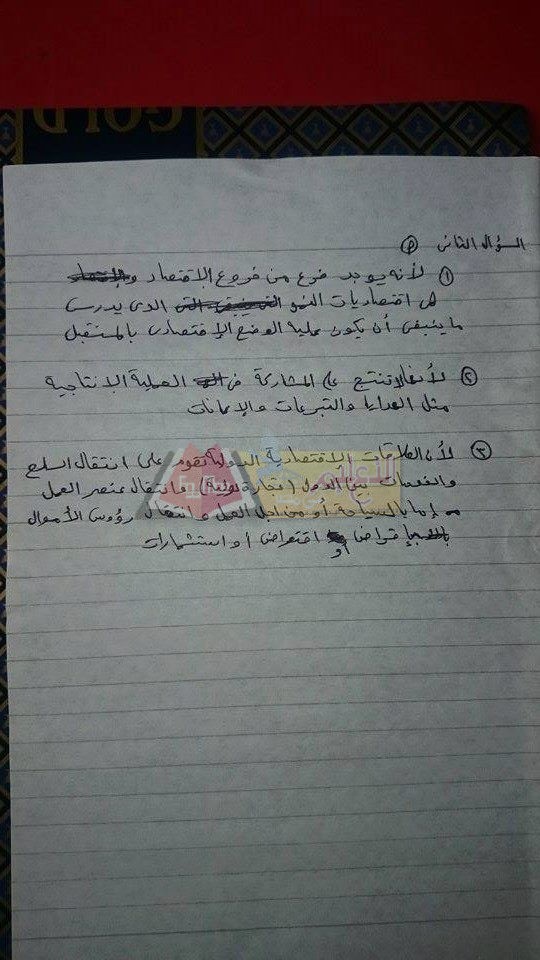 GOLD
السؤال الثاني (P)
① لأنه يوجد فرع من فروع الاقتصاد
هى اقتصاديات النمو الذى يدرس
ما ينبغى أن يكون عليه الوضع الإقتصادى بالمستقبل
② لأنها لا تنتج عن المشاركة فى العملية الانتاجية
مثل الهدايا والتبرعات والإعانات
③ لأن العلاقات الاقتصادية الدولية تقوم على انتقال السلع
والخدمات بين الدول (تجارة دولية) وانتقال عنصر العمل
إما بالسياحة أو من اجل العمل وانتقال رؤوس الأموال
إقراض أو اقتراض أو استثمارات